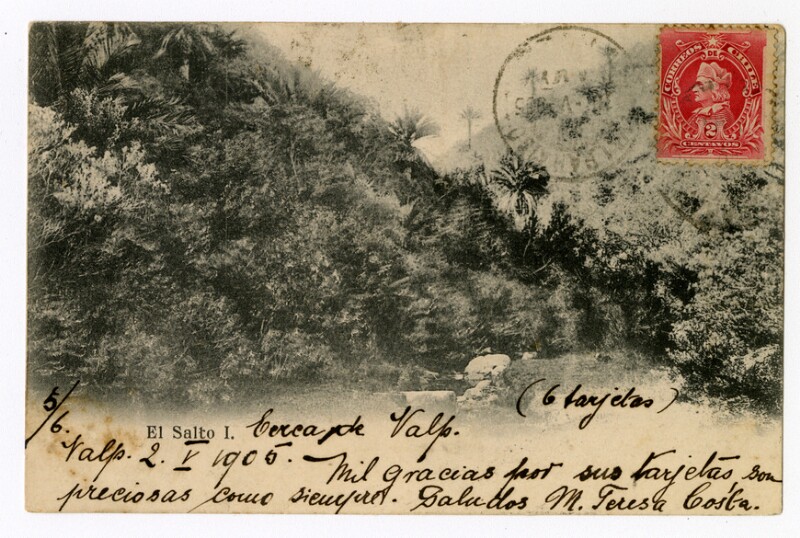 CORREOS DE CHILE
2
CENTAVOS
(6 tarjetas)
5/6.
El Salto I. Cerca de Valp.
Valp. 2. V 1905. — Mil gracias por sus tarjetas, son
preciosas como siempre. Saludos M. Teresa Costa.